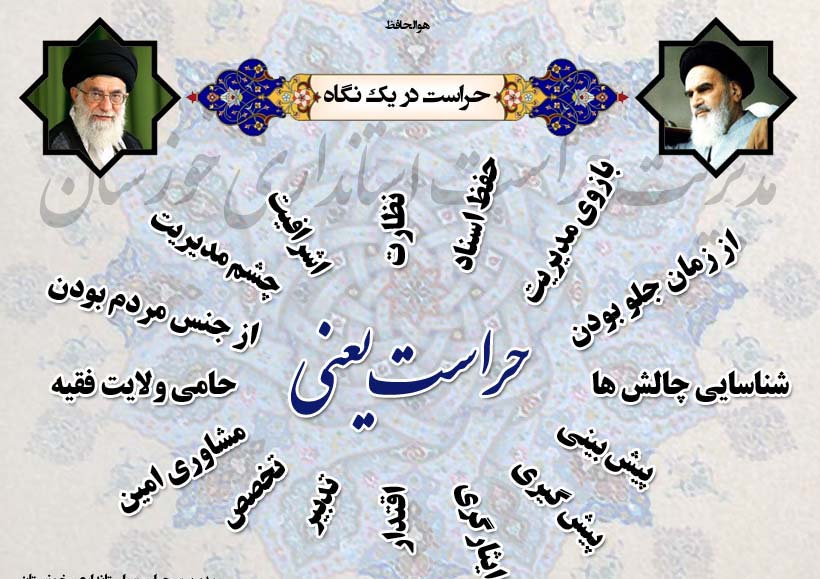 هوالحافظ
حراست در یک نگاه
مدیریت حراست استانداری خوزستان
حراست یعنی
بازوی مدیریت
حفظ اسناد
نظارت
اشرافیت
چشم مدیریت
از جنس مردم بودن
حامی ولایت فقیه
مشاوری امین
تخصص
تدبیر
اقتدار
ایثارگری
پیش گیری
پیش بینی
شناسایی چالش ها
از زمان جلو بودن